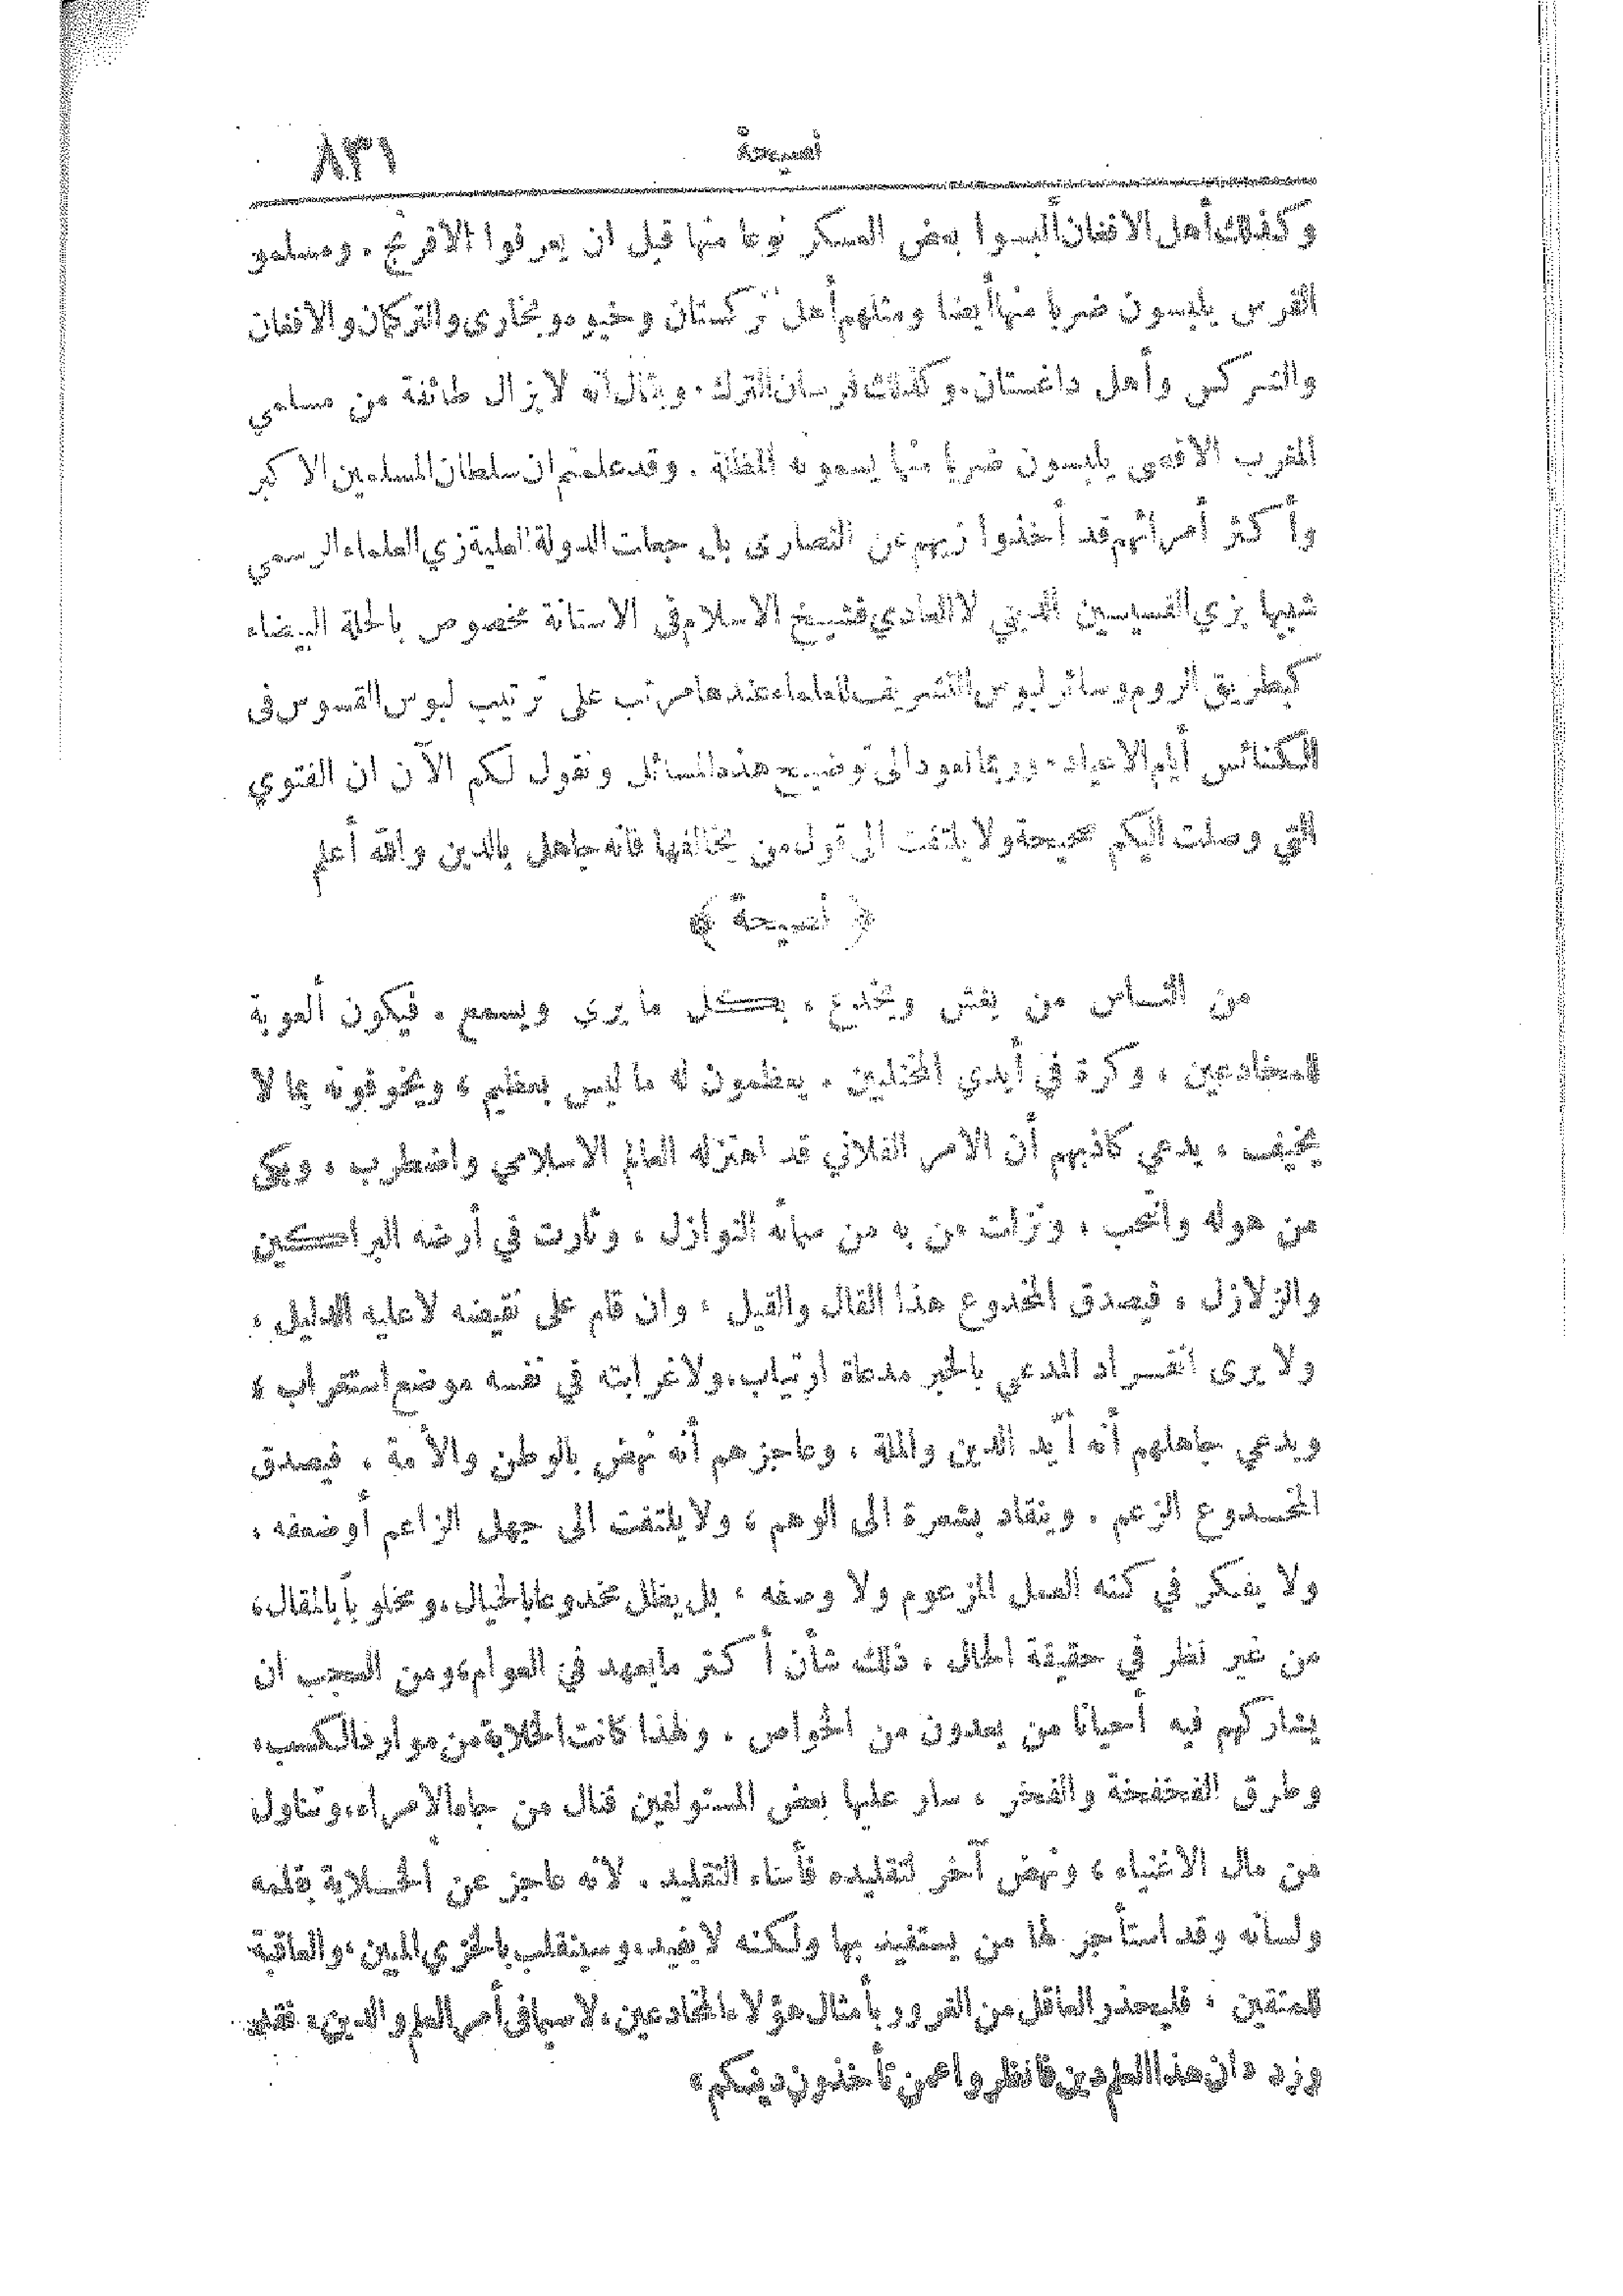 نصيحة ٨٣١
وكذلك أهل الافغان ألبسوا بعض العسكر نوعا منها قبل ان يعرفوا الافرنج . ومسلمو
الفرس يلبسون ضربا منها أيضا ومثلهم أهل تركستان وخيوه وبخارى والتركمان والافغان
والشركس وأهل داغستان . وكذلك فرسان الترك . ويقال انه لا يزال طائفة من مسلمي
المغرب الاقصى يلبسون ضربا منها يسمونه المظلة . وقد علمتم ان سلطان المسلمين الاكبر
وأكثر أمرائهم قد أخذوا زيهم عن النصارى بل جعلت الدولة العلية زي العلماء الرسمي
شبيها بزي القسيسين الديني لا العادي فشيخ الاسلام في الاستانة مخصوص بالحلة البيضاء
كبطريق الروم وسائر لبوس التشريف للعلماء عندها مرتب على ترتيب لبوس القسوس في
الكنائس أيام الاعياد . وربما نعود الى توضيح هذه المسائل ونقول لكم الآن ان الفتوي
التي وصلت اليكم صحيحة ولا يلتفت الى قول من يخالفها فانه جاهل بالدين والله أعلم
﴿ نصيحة ﴾
من النـاس من يغش ويخدع ، بكل ما يرى ويسمع . فيكون ألعوبة
للمخادعين ، وكرة في أيدي المختلبين . يعظمون له ما ليس بعظيم ، ويخوفونه بما لا
يخيف ، يدعي كاذبهم أن الأمر الفلاني قد اهتز له العالم الاسلامي واضطرب ، وبكى
من هوله وانتحب ، ونزلت من به من سمائه النوازل ، وثارت في أرضه البراكين
والزلازل ، فيصدق المخدوع هذا القال والقيل ، وان قام على نقيضه لا عليه الدليل ،
ولا يرى انفـراد المدعي بالخبر مدعاة ارتياب ، ولا غرابته في نفسه موضع استغراب ،
ويدعي جاهلهم أنه أيد الدين والملة ، وعاجزهم أنه نهض بالوطن والأمة ، فيصدق
المخـدوع الزعم . وينقاد بشعرة الى الوهم ، ولا يلتفت الى جهل الزاعم أو ضعفه ،
ولا يفـكر في كنه العمل المزعوم ولا وصفه ، بل يظل مخدوعا بالخيال ، ومخلوبأ بالمقال ،
من غير نظر في حقيقة الحال ، ذلك شأن أكثر ما يعهد في العوام ، ومن العجب ان
يشاركهم فيه أحيانا من يعدون من الخواص . ولهذا كانت الخلابة من موارد الكسب ،
وطرق الفخفخة والفخر ، سار عليها بعض المستولفين فنال من جاه الامراء ، وتناول
من مال الاغنياء ، ونهض آخر لتقليده فأساء التقليد . لانه عاجز عن الخـلابة بقلمه
ولسانه وقد استأجر لها من يستفيد بها ولكنه لا يفيد ، وسينقلب بالخزي المبين ، والعاقبة
للمتقين ، فليحذر العاقل من الغرور بأمثال هؤلاء المخادعين ، لا سيما في أمر العلم والدين ، فقد
ورد «ان هذا العلم دين فانظروا عمن تأخذون دينكم»